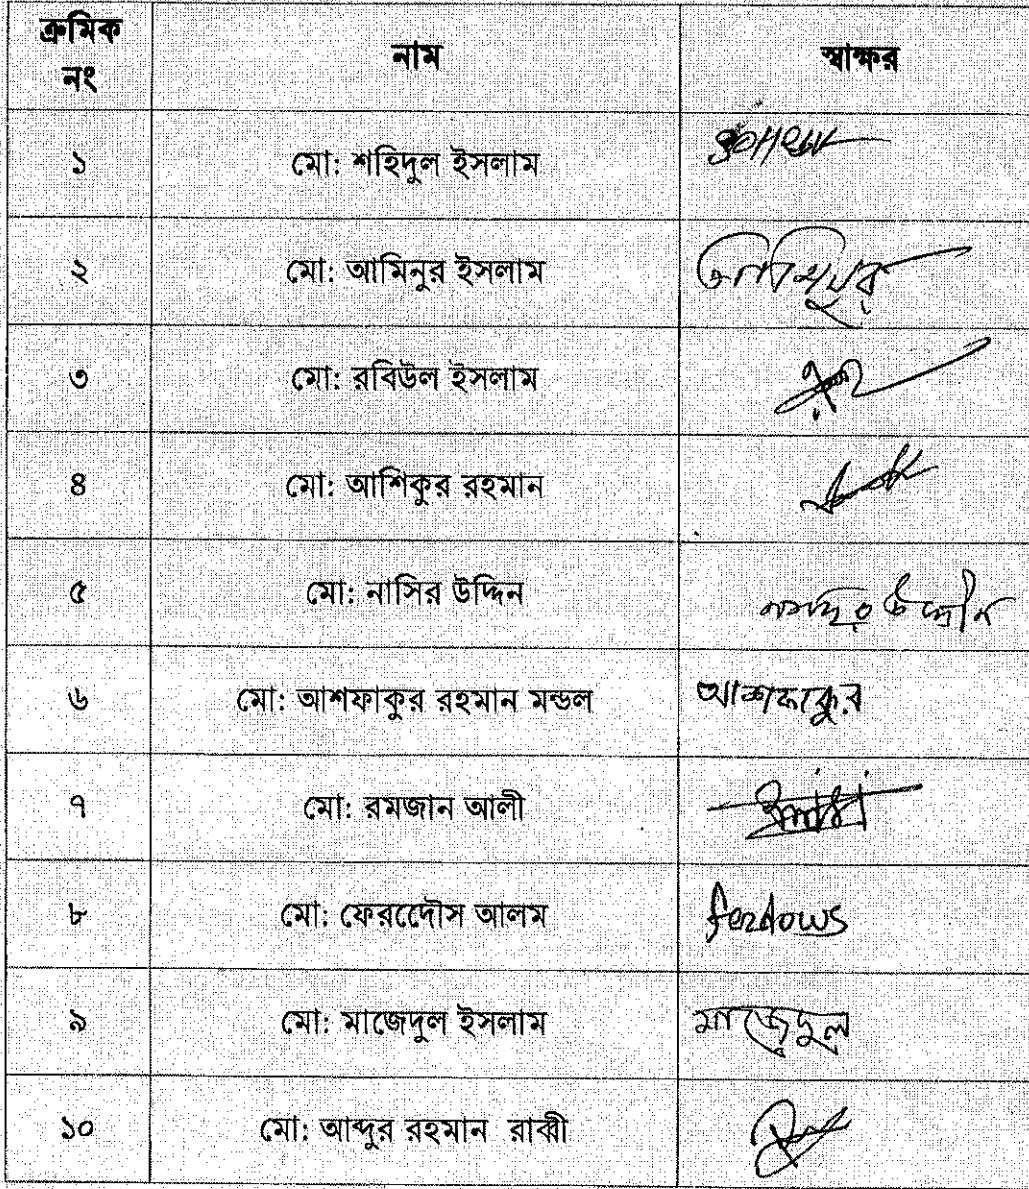 ক্রমিক নং নাম স্বাক্ষর
১ মো: শহিদুল ইসলাম
২ মো: আমিনুর ইসলাম আমিনুর
৩ মো: রবিউল ইসলাম
৪ মো: আশিকুর রহমান
৫ মো: নাসির উদ্দিন নাসির উদ্দীন
৬ মো: আশফাকুর রহমান মন্ডল আশফাকুর
৭ মো: রমজান আলী
৮ মো: ফেরদৌেস আলম ferdows
৯ মো: মাজেদুল ইসলাম মাজেদুল
১০ মো: আব্দুর রহমান রাব্বী